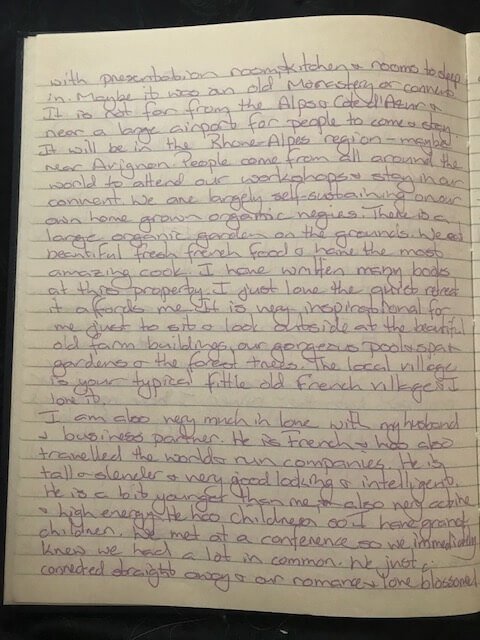 with presentation room, kitchen & rooms to sleep
in. Maybe it was an old Monastery or convent.
It is not far from the Alps & Cote d'Azur &
near a large airport for people to come & stay.
It will be in the Rhone-Alpes region - maybe
near Avignon. People come from all around the
world to attend our workshops & stay in our
convent. We are largely self-sustaining on our
own home grown organic vegies. There is a
large organic garden on the grounds. We eat
beautiful fresh french food & have the most
amazing cook. I have written many books
at this property. I just love the quiet retreat
it affords me. It is very inspirational for
me just to sit & look outside at the beautiful
old farm buildings, our gorgeous pool & spa &
gardens & the forest trees. The local village
is your typical little old French village & I
love it.
I am also very much in love with my husband
& business partner. He is French & has also
travelled the world & run companies. He is
tall & slender & very good looking & intelligent.
He is a bit younger than me, & also very active
& high energy. He has children so I have grand
children. We met at a conference so we immediately
knew we had a lot in common. We just
connected straight away & our romance & love blossomed